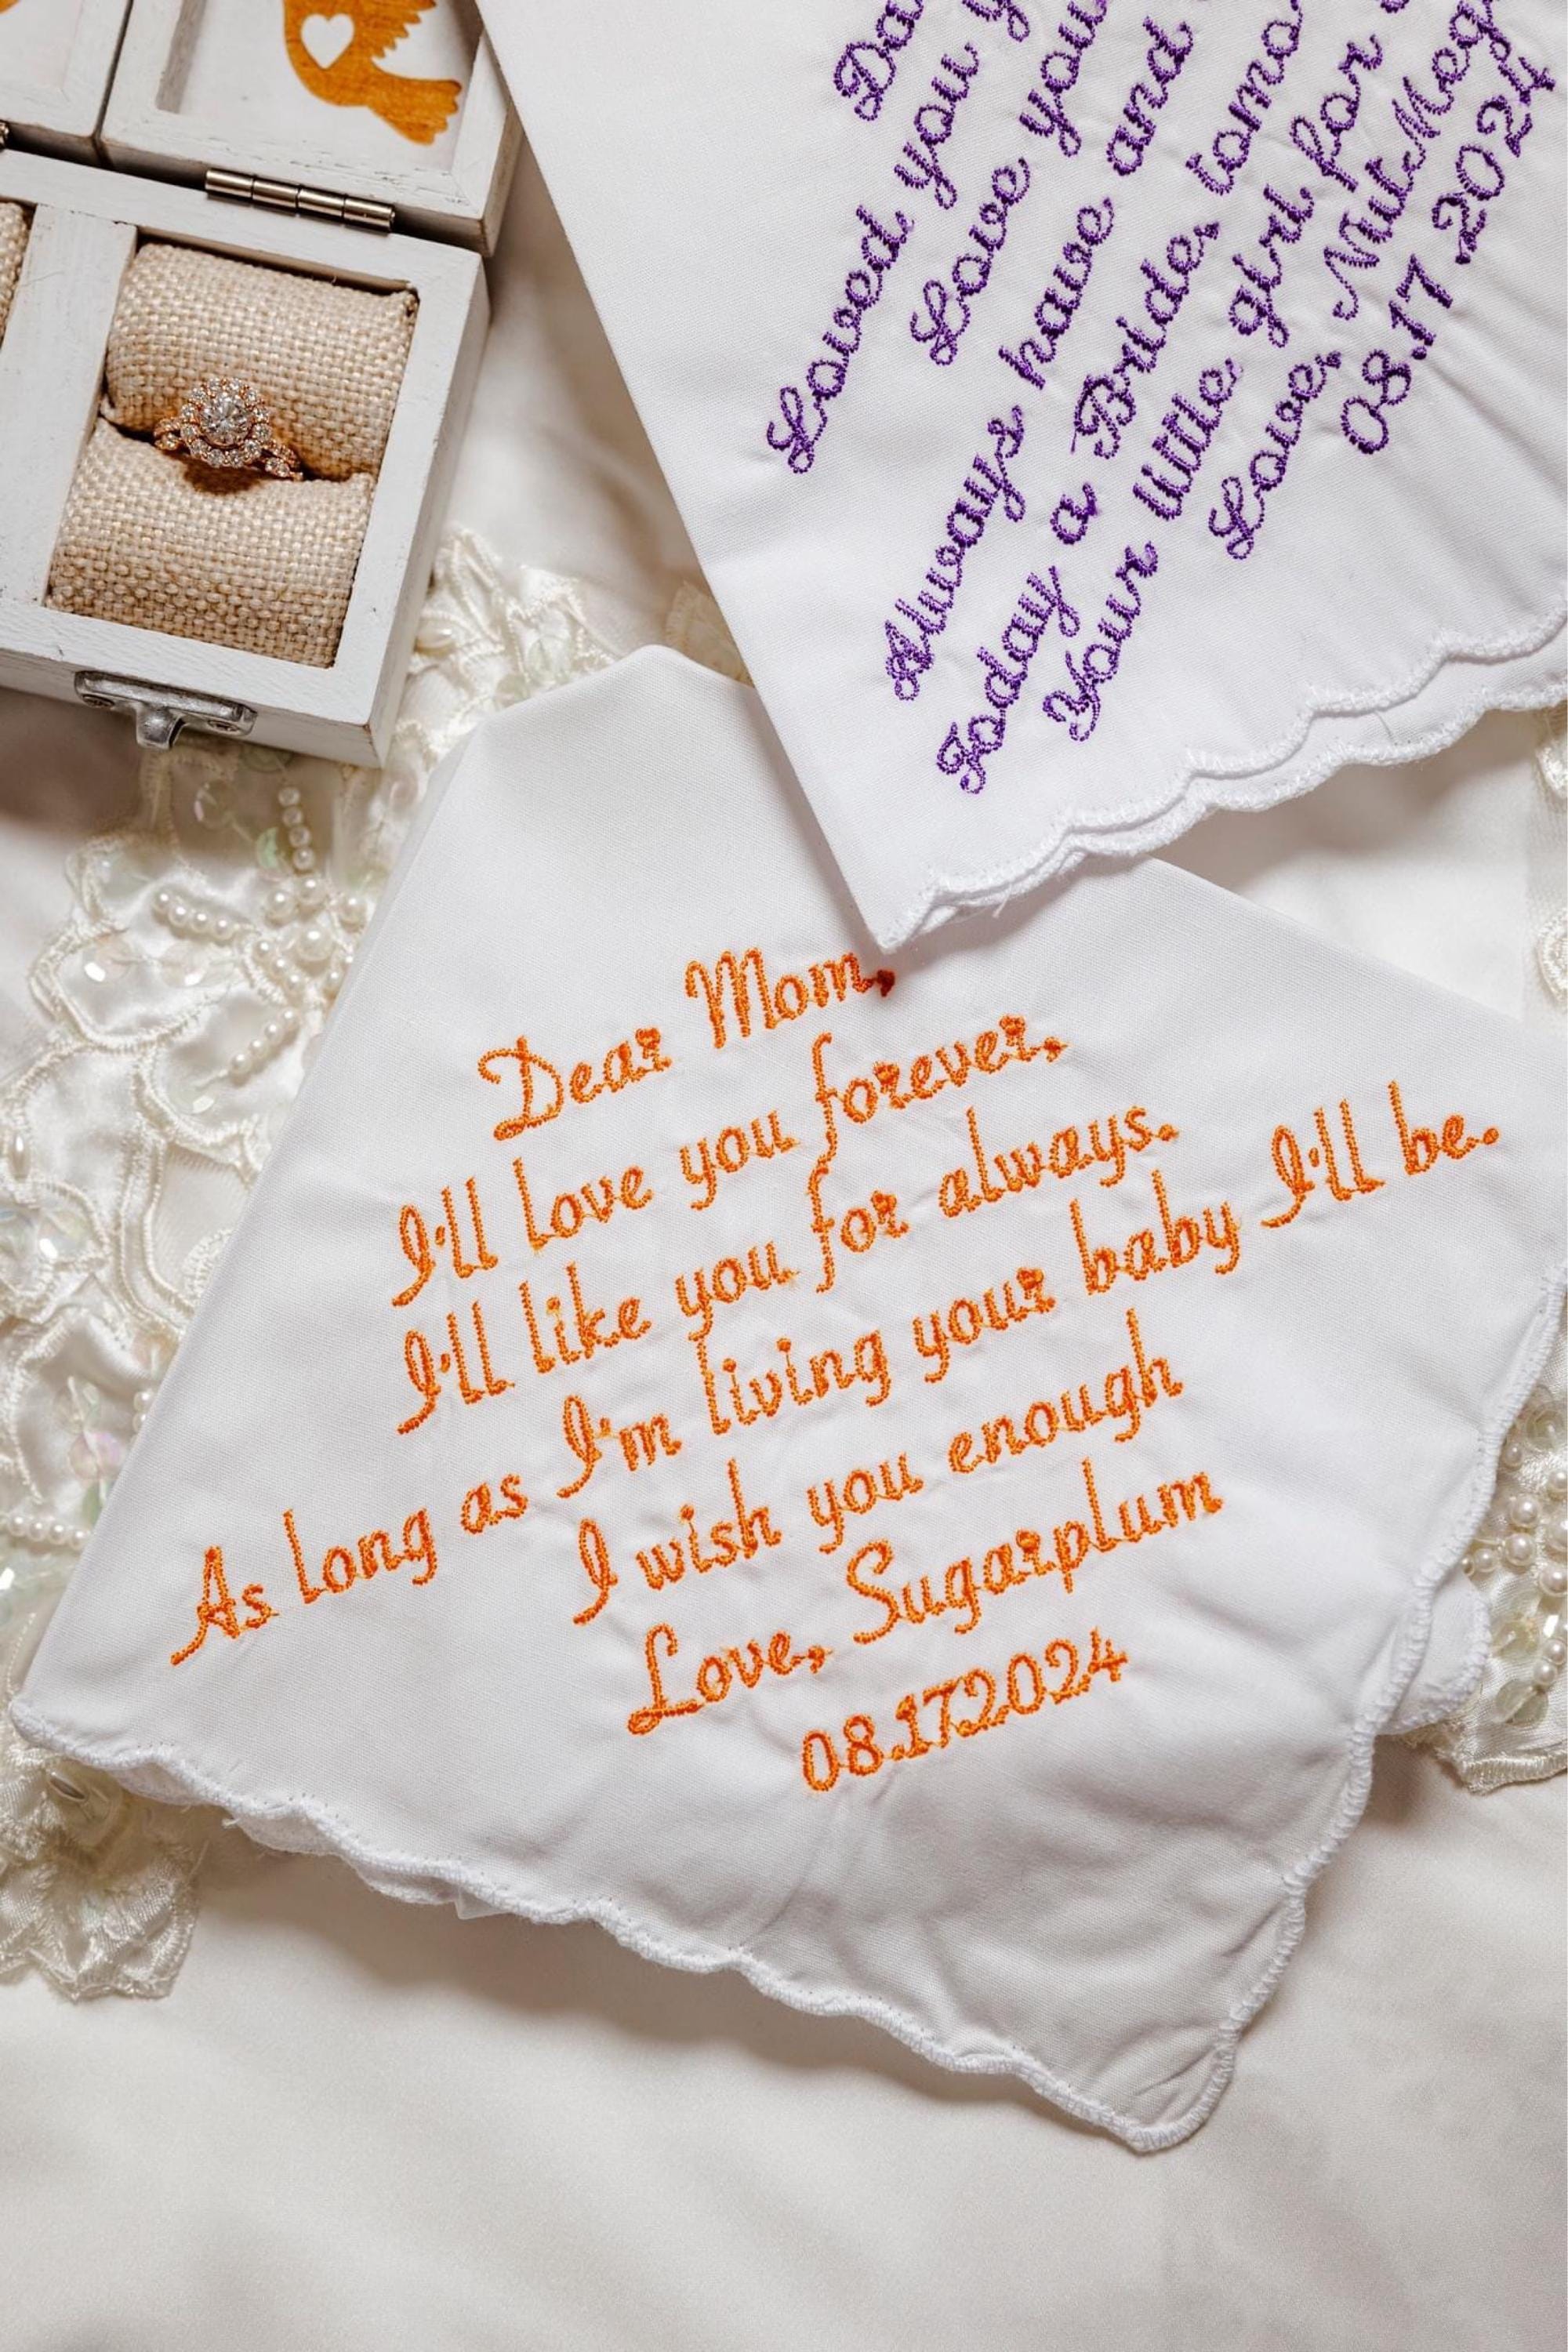 Loved you
Love you
Always have and
Today a Bride,
Your little girl for
Love,
08.17.2024
Dear Mom,
I'll love you forever,
I'll like you for always.
As long as I'm living your baby I'll be.
I wish you enough
Love, Sugarplum
08.172024